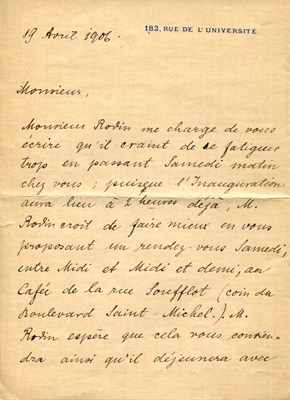 182, RUE DE L'UNIVERSITÉ
19 Avril 1906.
Monsieur,
Monsieur Rodin me charge de vous
écrire qu'il craint de se fatiguer
trop en passant Samedi matin
chez vous ; puisque l'Inauguration
aura lieu à 2 heures déjà, M.
Rodin croit de faire mieux en vous
proposant un rendez-vous Samedi,
entre Midi et Midi et demi, au
Café de la rue Soufflot (coin du
Boulevard Saint-Michel.). M.
Rodin espère que cela vous convien-
dra ainsi qu'il déjeunera avec